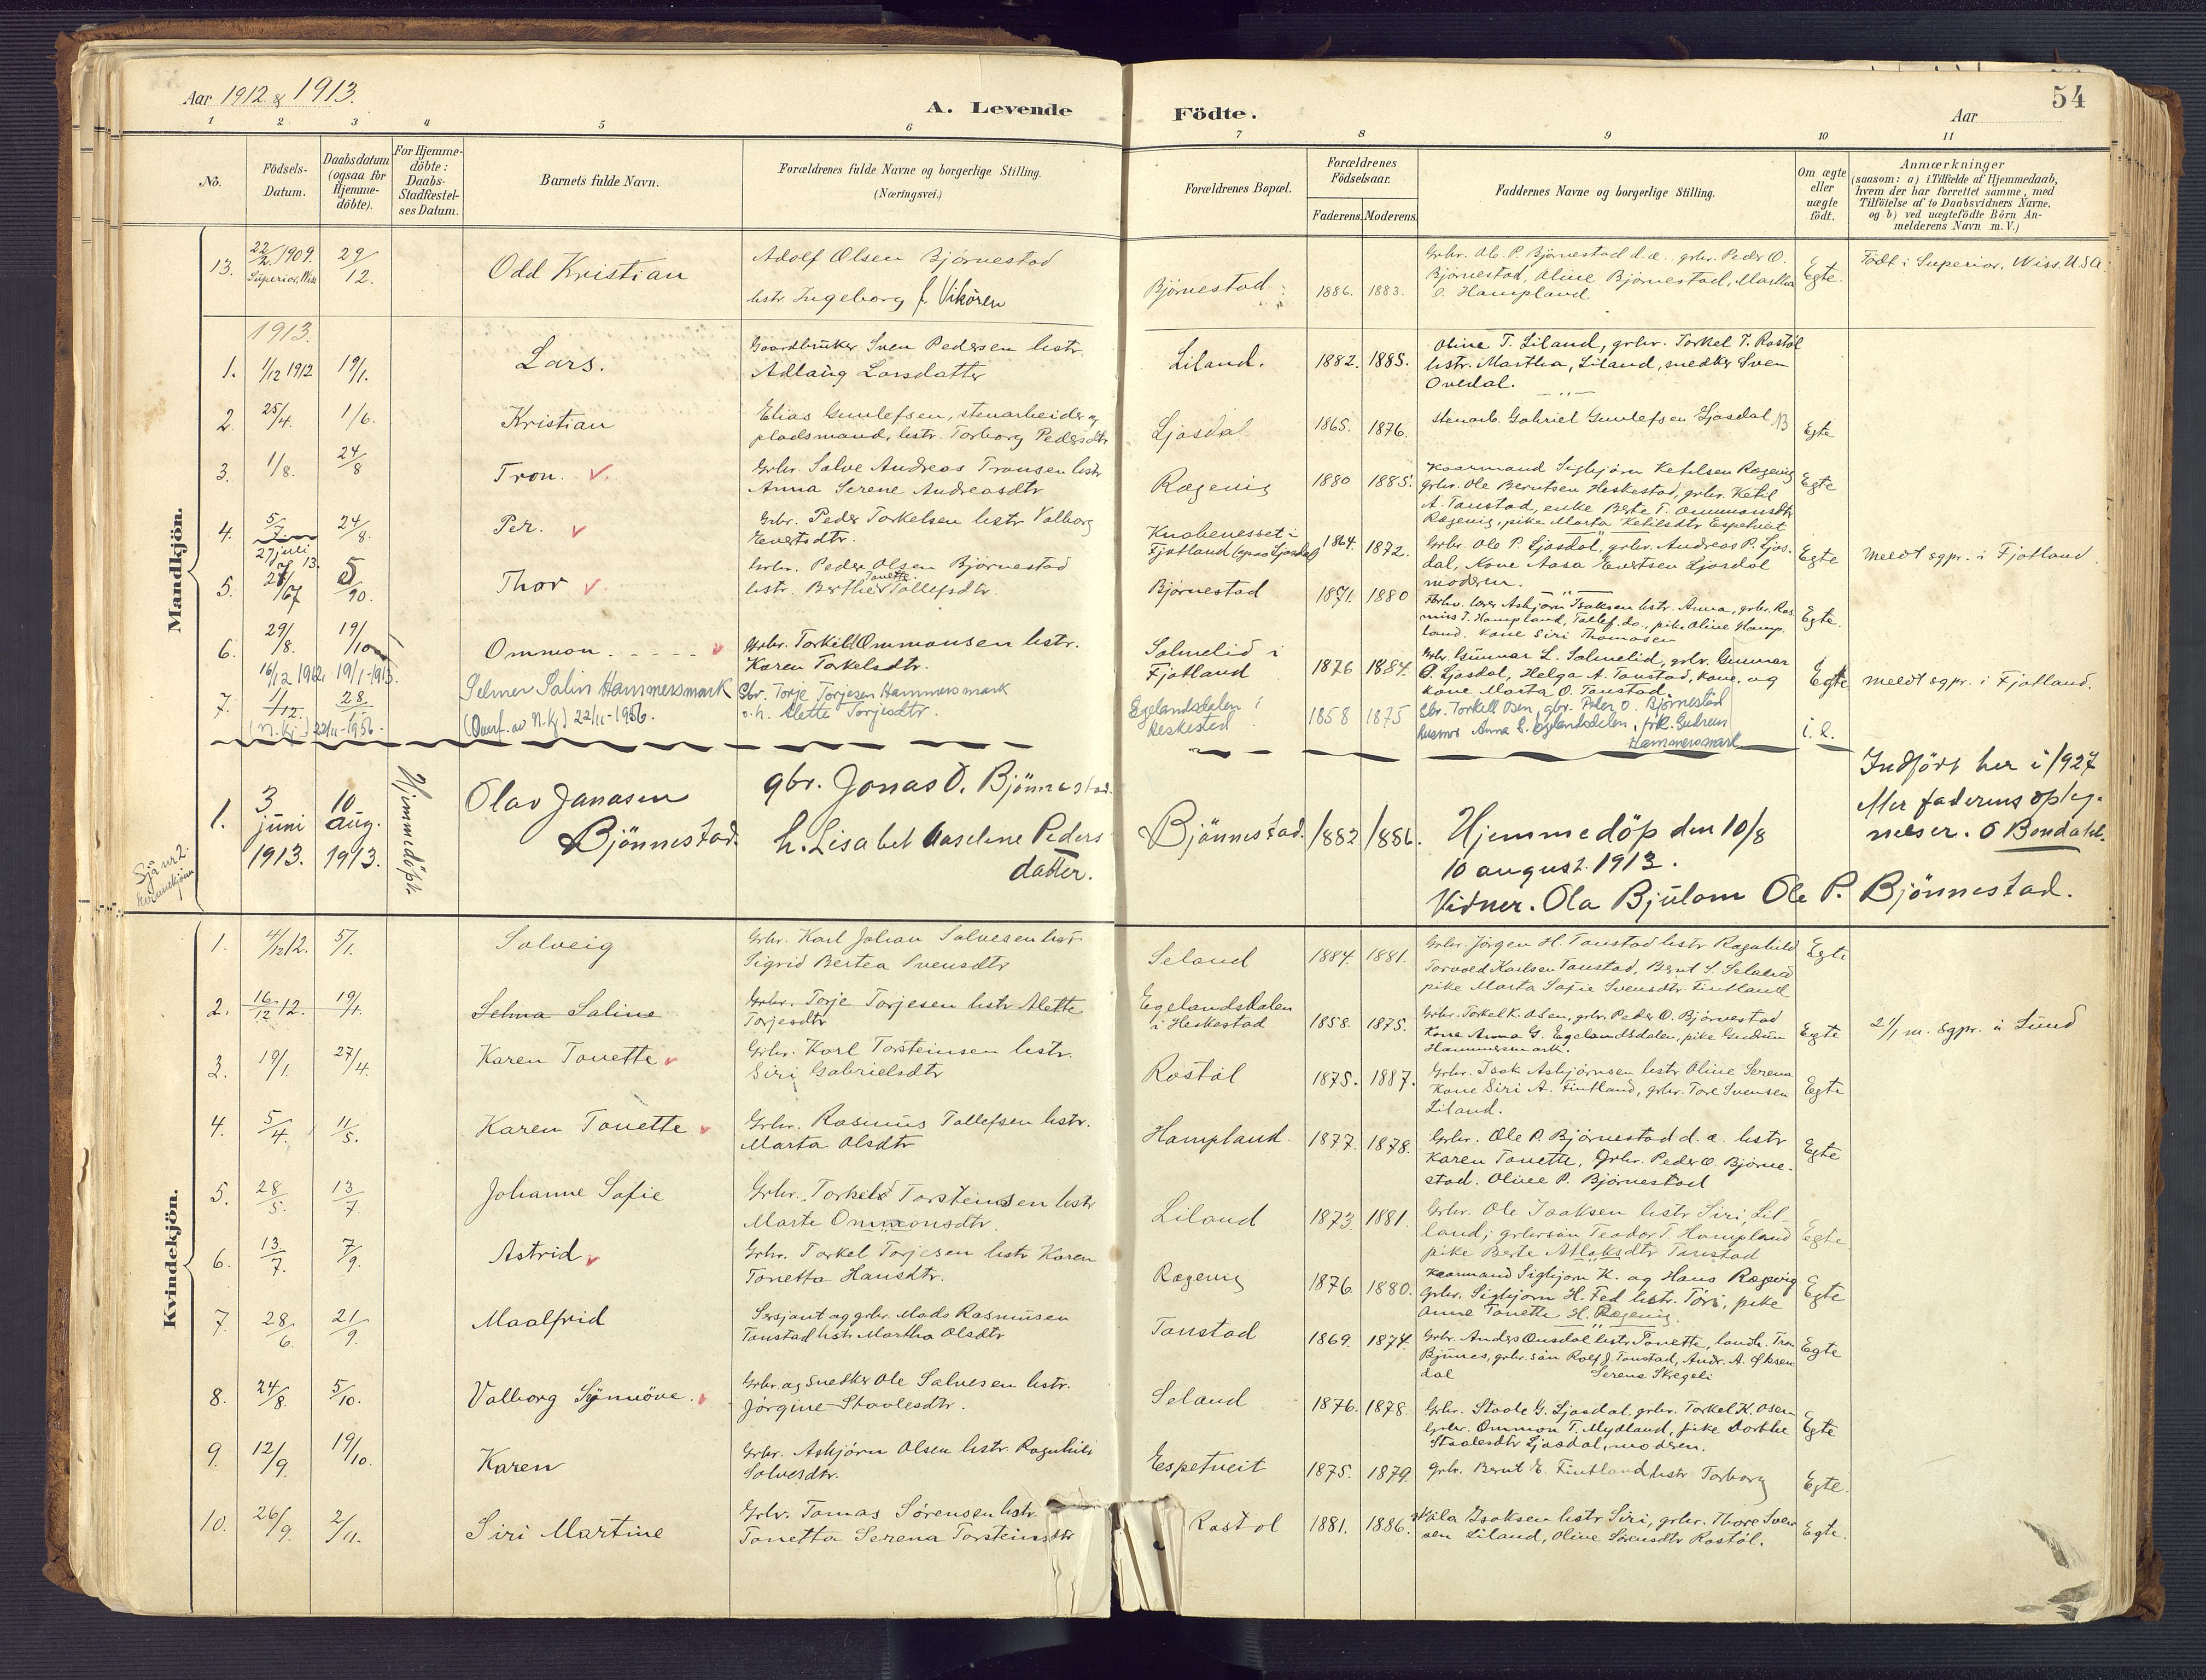 Aar 1912 & 1913.
A. Levende
Födte.
Aar
54
1 2 3 4 5 6 7 8 9 10 11
No.
Födsels-Datum.
Daabsdatum (ogsaa for Hjemme-döbte).
For Hjemme-döbte: Daabs-Stadfæstel-ses Datum.
Barnets fulde Navn.
Forældrenes fulde Navne og borgerlige Stilling.
(Næringsvei.)
Forældrenes Bopæl.
Forældrenes Födselsaar.
Faderens. Moderens.
Faddernes Navne og borgerlige Stilling.
Om ægte eller uægte födt.
Anmærkninger
(saasom: a) i Tilfælde af Hjemmedaab,
hvem der har forrettet samme, med
Tilföielse af to Daabsvidners Navne,
og b) ved uægtefödte Börn An-
melderens Navn m. V.)
Mandkjön.
13. 22/2. 1909. Superior, Wiss 29/12. Odd Kristian
Adolf Olsen Bjørnestad
hstr Ingeborg f. Vikören
Bjørnestad 1886. 1883.
Grbr. Ole P. Bjørnestad d.æ. grbr. Peder O.
Bjørnestad, Oline Bjørnestad, Martha
Hampland
Egte.
Födt i Superior, Wiss. U.S.A.
1913.
1. 1/12 1912 19/1. Lars.
Gaardbruker Sven Pedersen hstr.
Adlaug Larsdatter
Liland. 1882. 1885.
Oline T. Liland, grbr. Torkel T. Rostøl
hstr. Martha, Liland, snedker Sven
Ovedal.
2. 25/4. 1/6. Kristian
Elias Gunlefsen, stenarbeider og
pladsmand, hstr. Torborg Pedersdtr
Ljosdal 1865. 1876.
Stenarb. Gabriel Gunlefsen Ljosdal
Egte
3. 1/8. 24/8 Tron.
Grbr. Salve Andreas Tronsen hstr
Anna Serene Andreasdtr
Rægevig 1880 1885.
Kaarmand Sigbjørn Ketilsen Rægevig
grbr. Ole Berntsen Heskestad, grbr. Ketil
A. Tonstad, enke Berte T. Ommonsdtr
Rægevig, pike Marta Ketilsdtr Espetveit
Egte
4. 5/7 27 juli 13. 24/8. Per.
Grbr. Peder Torkelsen hstr Valborg
Evertsdtr.
Knabenesset i
Fjotland (opvo Ljosdal) 1864. 1872.
Grbr. Ole P. Ljosdal, grbr. Andreas P. Ljos-
dal, Kone Aasa Evertsen Ljosdal
moderen.
Egte
meldt sgpr. i Fjotland.
5. 5/90. Thor
Grbr. Peder Olsen Bjørnestad
hstr. Berthe Tonette Tollefsdtr.
Bjørnestad 1871. 1880
Forhv. lærer Asbjørn Isaksen hstr. Anna, grbr. Ras
mus T. Hampland, Tollef do., pike Oline Hamp-
land. Kone Siri Thomasen
Egte.
6. 29/8. 19/10 Ommon
Grbr. Torkild Ommonsen hstr.
Karen Torkelsdtr.
Salmelid i
Fjotland 1876 1884.
Grbr. Gunnar L. Salmelid, grbr. Gunnar
P. Ljosdal, Helga A. Tonstad, Kone, og
Kone Marta O. Tonstad.
Egte
meldt sgpr. i Fjotland.
7. 16/12 1912, 19/1-1913. 1/12. 28
(N. Kj.) 22/11-1956.
Selmer Salin Hammersmark
(Overf. av N. Kj.) 22/11-1956.
Gbr. Torje Torjesen Hammersmark
o.h. Alette Torjesdtr.
Egelandsdalen i
Heskestad 1858 1875
Gbr. Torkell Osen, gbr. Peder O. Bjørnestad
husmor Anna G. Egelandsdalen, frk. Gudrun
Hammersmark
i. e.
Sjå nr 2. kvinnekjønn
1. 3 juni 1913. 10 aug. 1913. Hjemmedöpt.
Olav Janasen
Bjönnestad.
gbr. Jonas O. Bjönnestad.
h. Lisabet Aaselene Peders
datter.
Bjönnestad. 1882 1886.
Hjemmedöp den 10/8
10 august. 1913.
Vidner. Ola Bjulom Ole P. Bjönnestad.
Indfört her i 1927
efter faderens opteg-
nelser. O Bondahl.
Kvindekjön.
1. 4/12 12. 5/1. Solveig
Grbr. Karl Johan Salvesen hstr
Sigrid Bertea Svensdtr
Seland 1884. 1881.
Grbr. Jörgen H. Tonstad hstr Ragnhild
Torvald Karlsen Tonstad, Bernt S. Seland
pike Marta Sofie Svensdtr Fintland
Egte
2. 16/12 12. 19/1. Selma Saline
Grbr. Torje Torjesen hstr Alette
Torjesdtr
Egelandsdalen
i Heskestad 1858. 1875.
Grbr. Torkel K. Osen, grbr. Peder O. Bjørnestad
Kone Anna G. Egelandsdalen, pike Gudrun
Hammersmark.
Egte
21/1 m. sgpr. i Lund
3. 19/1. 27/4. Karen Tonette
Grbr. Karl Torsteinsen hstr.
Siri Gabrielsdtr
Rostøl 1875. 1887.
Grbr. Isak Asbjørnsen hstr Oline Serena
Kone Siri A. Fintland, grbr. Tore Svensen
Liland.
Egte
4. 5/4. 11/5. Karen Tonette
Grbr. Rasmus Tollefsen hstr.
Marta Olsdtr
Hampland 1877. 1878.
Grbr. Ole P. Bjørnestad d.æ. hstr
Karen Tonette, Grbr. Peder O. Bjørne-
stad. Oline P. Bjørnestad
Egte
5. 28/5. 13/7 Johanne Sofie
Grbr. Torkel Torsteinsen hstr
Marte Ommonsdtr.
Liland 1873. 1881.
Grbr. Ole Isaksen hstr Siri, Lil-
land; grbrsøn Teodor T. Hampland
pike Berte Atlaksdtr Tonstad
Egte.
6. 13/7. 7/9. Astrid
Grbr. Torkel Torjesen hstr Karen
Tonetta Hansdtr.
Rægevig 1876. 1880.
Kaarmand Sigbjørn K. og Hans Rægevig
Grbr. Sigbjørn H. Fed hstr. Töri, pike
Anne Tonette H. Rægevig.
Egte
7. 28/6 21/9. Maalfrid
Sersjant og grbr. Mads Rasmusen
Tonstad hstr Martha Olsdtr
Tonstad 1869. 1874.
Grbr. Anders Ousdal hstr Tonette, landh. Tron
Bjunes, grbr. søn Rolf J. Tonstad, Andr. A. Øksen
dal Serene Skregeli
Egte
8. 24/8. 5/10. Valborg Synnöve.
Grbr og snedker Ole Salvesen hstr.
Jörgine Staalesdtr.
Seland 1876. 1878.
Grbr. Staale G. Ljosdal, grbr. Torkel K. Osen
Grbr. Ommon T. Mydland, pike Dorthe
Staalesdtr Ljosdal, moderen.
Egte
9. 12/9. 19/10. Karen
Grbr. Asbjørn Olsen hstr. Ragnhild
Salvesdtr.
Espetveit 1875. 1879.
Grbr. Bernt E. Fintland hstr Torborg
Egte.
10. 26/9. 2/11. Siri Martine
Grbr. Tomas Sørensen hstr.
Tonetta Serena Torsteinsdtr
Rostøl 1881. 1886.
Ola Isaksen hstr Siri, grbr. Thore Sven
sen Liland, Oline Sørensdtr Rostöl.
Egte.